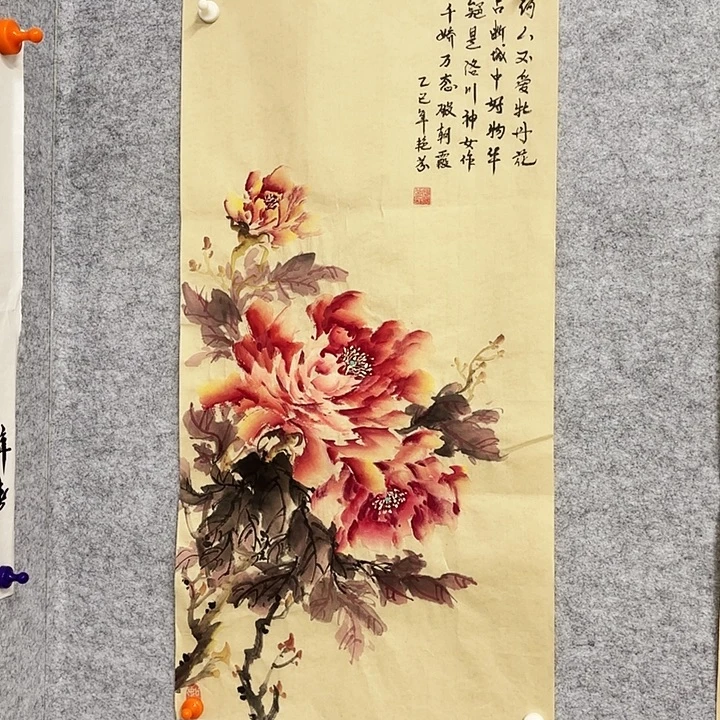 何人不爱牡丹花
占断城中好物华
疑是洛川神女作
千娇万态破朝霞
乙巳年艳芬